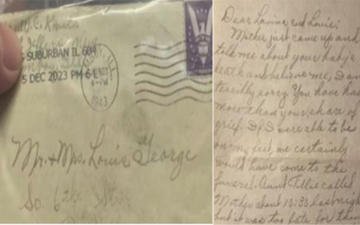 S SUBURBAN IL 604
5 DEC 2023 PM 6 L
1943
Mr. & Mrs. Louis George
So. 6th
Dear Lavina and Louis:
Mother just came up and
told me about your baby's
death and believe me, I am
terribly sorry. You have had
more than your share of
grief. If I was able to be
on my feet, we certainly
would have come to the
funeral. Aunt Tillie called
Mother about 10:30 last night
but it was too late for them